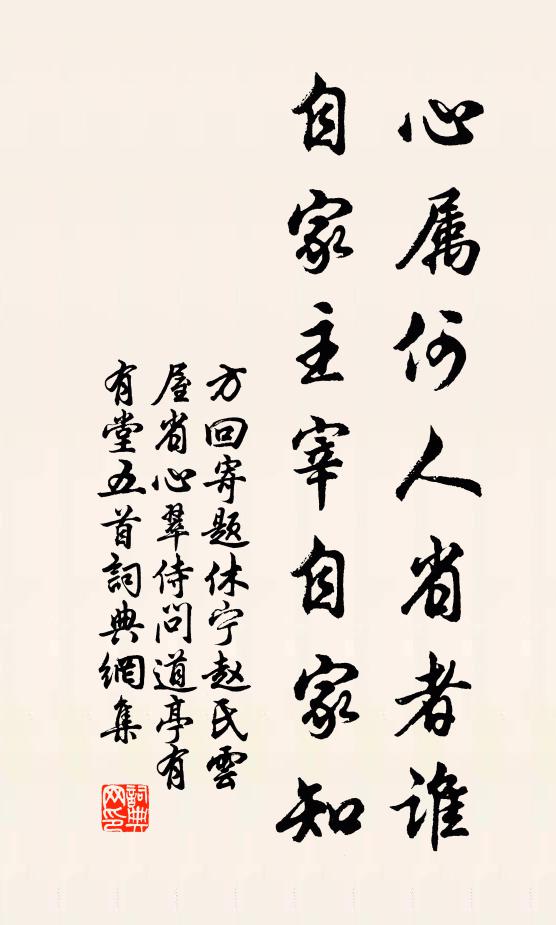 心属何人省者谁
自家主宰自家知
方回寄题休宁赵氏雲
屋省心翠侍問道亭有
有堂五首詞典網集
詞典
网印